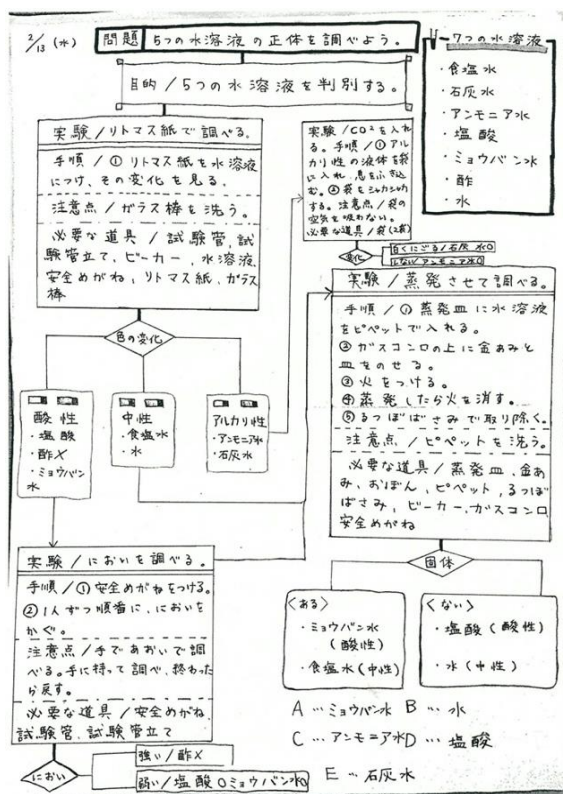 2/13 (水)
問題 5つの水溶液の正体を調べよう。
目的/5つの水溶液を判別する。
7つの水溶液
・食塩水
・石灰水
・アンモニア水
・塩酸
・ミョウバン水
・酢
・水
実験/リトマス紙で調べる。
手順/①リトマス紙を水溶液
につけ、その変化を見る、
注意点/ガラス棒を洗う。
必要な道具/試験管,試
験管立て、ビーカー、水溶液、
安全めがね、リトマス紙、ガラス
棒
色の変化
酸性
・塩酸
・酢X
・ミョウバン
水
中性
・食塩水
・水
アルカリ性
・アンモニア水
・石灰水
実験/CO²を入れ
る。手順/①アル
カリ性の液体を袋
に入れ、息をふき込
む。②袋をシャカシャカ
する。注意点/袋の
空気を吸わない。
必要な道具/袋(2袋)
変化
白くにごる/石灰水O
アンモニア水O
実験/蒸発させて調べる。
手順/①蒸発皿に水溶液
をピペットで入れる。
②ガスコンロの上に金あみと
皿をのせる。
③火をつける。
④蒸発したら火を消す。
⑤るつぼばさみで取り除く。
注意点/ピペットを洗う。
必要な道具/蒸発皿、金あ
み、おぼん、ピペット、るつぼ
ばさみ、ビーカー、ガスコンロ
安全めがね
固体
<ある>
・ミョウバン水
(酸性)
・食塩水(中性)
<ない>
・塩酸(酸性)
・水(中性)
実験/においを調べる。
手順/①安全めがねをつける。
②1人ずつ順番に、においを
かぐ。
注意点/手であおいで調
べる。手に持って調べ、終わった
ら戻す。
必要な道具/安全めがね、
試験管、試験管立て
におい
強い/酢X
弱い/塩酸Oミョウバン水O
A…ミョウバン水 B…水
C…アンモニア水 D…塩酸
E…石灰水